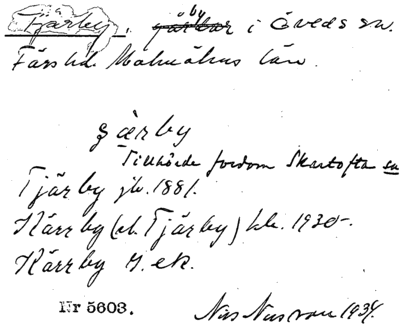 Tjärby, i Öveds sn.
Färs hd. Malmöhus län.
çärby
Tillhörde fordom Skartofta sn
Tjärby jb. 1881.
Kärrby (el. Tjärby) hk. 1930-.
Kärrby G. ek.
Nr 5603.
Nils Nilsson 1934.